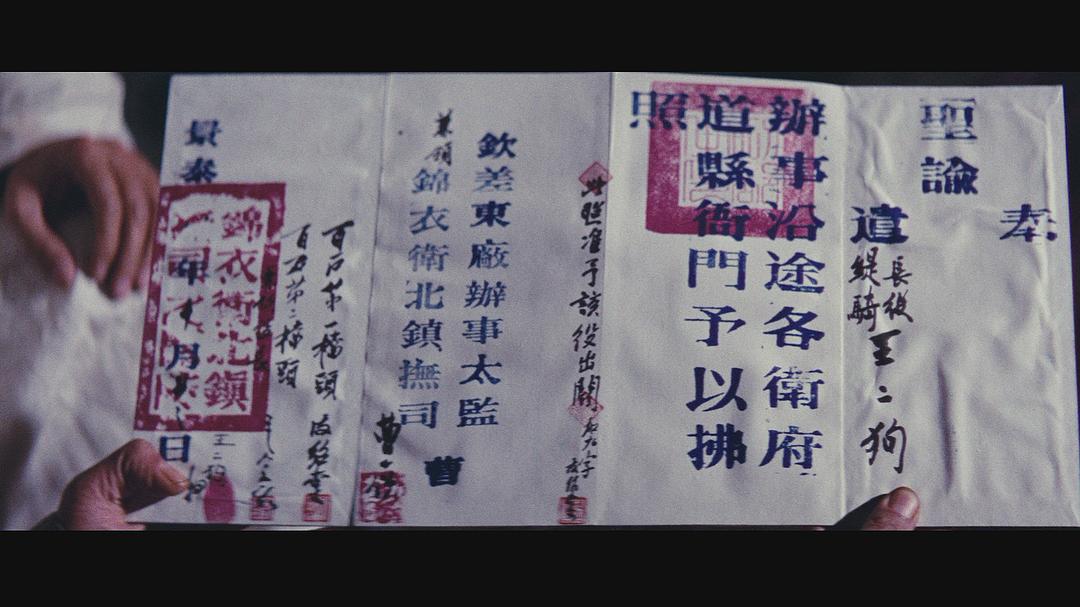 奉
聖諭
遣長役緹騎王二狗
辦事沿途各衛府
道縣衙門予以拂
照
此照准予該役出關
欽差東廠辦事太監曹
兼領錦衣衛北鎮撫司
百戶第一檔頭
百戶第二檔頭
景泰
年
月
日
錦衣衛北鎮
王二狗